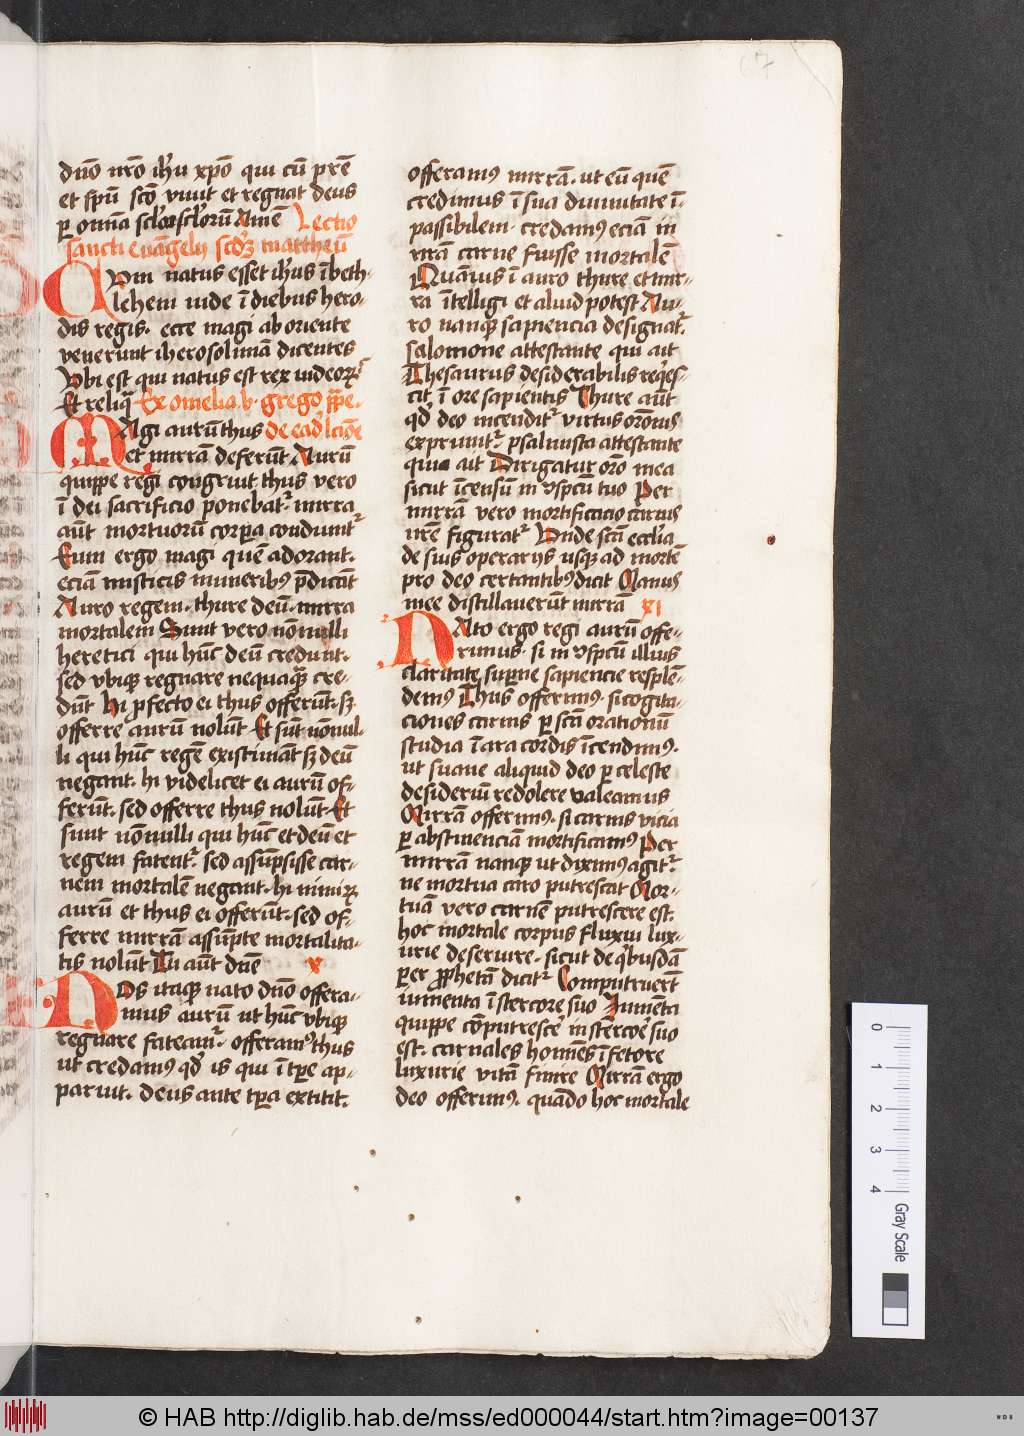 67
dn̄o nr̄o ih̄u xp̄o qui cū pr̄e
et sp̄u sc̄o viuit et regnat deus
ꝑ om̄a sc̄lor sc̄lorū Amē Lectio
sancti euāgelij scd̄ꝫ mattheū
CVm natus esset ih̄us ī beth-
lehem iude ī diebus hero-
dis regis. ecce magi ab oriente
venerunt iherosolimā dicentes
Vbi est qui natus est rex iudeorꝝ
Et reliq̄ Ex omelia. b. grego. pp̄e.
MAgi aurū thus de eadē lcīoē
et mirrā deferūt Aurū
quippe regi congruit thus vero
ī dei sacrificio ponebat᷑. mirra
aūt mortuorū corꝑa condiunt᷑
Eum ergo magi quē adorant.
eciā misticis muneribꝰ p̄dicāt
Auro regem. thure deū. mirra
mortalem Sunt vero nōnulli
heretici qui hūc deū credunt.
sed vbiqꝫ regnare nequaqᷓ cre-
dūt Hi ꝓfecto ei thus offerūt. sꝫ
offerre aurū nolūt Et sūt nōnul-
li qui hūc regē existimāt sꝫ deū
negant. hi videlicet ei aurū of-
ferūt. sed offerre thus nolūt Et
sunt nōnulli qui hūc et deū et
regem fatent᷑. sed assūpsisse car-
nem mortalē negant. hi nimirꝝ
aurū et thus ei offerūt. sed of-
ferre mirrā assūpte mortalita-
tis nolūt Tu aūt dn̄e x
NOs itaqꝫ nato dn̄o offera-
mus aurū ut hūc vbiqꝫ
regnare fateam᷑. offeramꝰ thus
ut credamꝰ qd̄ is qui ī tꝑe ap-
paruit. deus ante tꝑa extitit.
offeramꝰ mirrā. ut eū quē
credimus ī sua diuinitate ī-
passibilem. credamꝰ eciā in
nr̄ā carne fuisse mortalē
Quāuis ī auro thure et mir-
ra ītelligi et aliud potest Au-
ro nanqꝫ sapiencia designat᷑.
salomone attestante qui ait
Thesaurus desiderabilis reqͥes-
cit ī ore sapientis Thure aūt
qd̄ deo incendit᷑ virtus or̄onis
exprimit᷑. psalmista attestante
qui ait Dirigatur or̄o mea
sicut īcensū in ɔspc̄u tuo Per
mirrā vero mortificacio carnis
nr̄e figurat᷑ Vnde sc̄a ecc̄lia
de suis operarijs usqꝫ ad mortē
pro deo certantibꝰ dicit Manus
mee distillauerūt mirrā xi
NAto ergo regi aurū offe-
rimus. si in ɔspc̄u illius
claritate superne sapiencie resplē-
demꝰ Thus offerimꝰ. si cogita-
ciones carnis ꝑ sc̄a orationū
studia ī ara cordis īcendimꝰ.
ut suaue aliquid deo ꝑ celeste
desideriū redolere valeamus
Mirrā offerimꝰ. si carnis vicia
ꝑ abstinenciā mortificamꝰ Per
mirrā nanqꝫ ut diximꝰ agit᷑.
ne mortua caro putrescat Mor-
tuā vero carnē putrescere est.
hoc mortale corpus fluxui lux-
urie deseruire. sicut de qͥbusdā
per ꝓphetā dicit᷑ Computruerūt
iumenta ī stercore suo Iumēta
quippe cōputrescē in stercoē suo
est. carnales homīes ī fetore
luxurie vitā finire Mirrā ergo
deo offerimꝰ. quādo hoc mortale
0 1 2 3 4
Gray Scale
© HAB http://diglib.hab.de/mss/ed000044/start.htm?image=00137